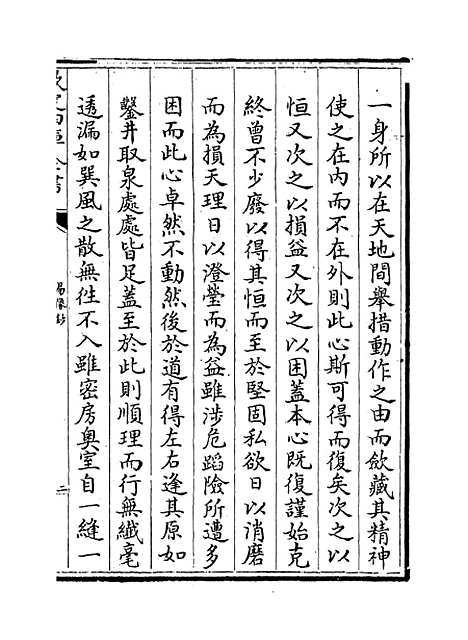 一身所以在天地間舉措動作之由而斂藏其精神
使之在内而不在外則此心斯可得而復矣次之以
恒又次之以損益又次之以困蓋本心既復謹始克
終曾不少廢以得其恒而至於堅固私欲日以消磨
而為損天理日以澄瑩而為益雖涉危蹈險所遭多
困而此心卓然不動然後於道有得左右逢其原如
鑿井取泉處處皆足蓋至於此則順理而行無纖毫
透漏如巽風之散無徃不入雖密房奥室自一縫一
易像鈔
二